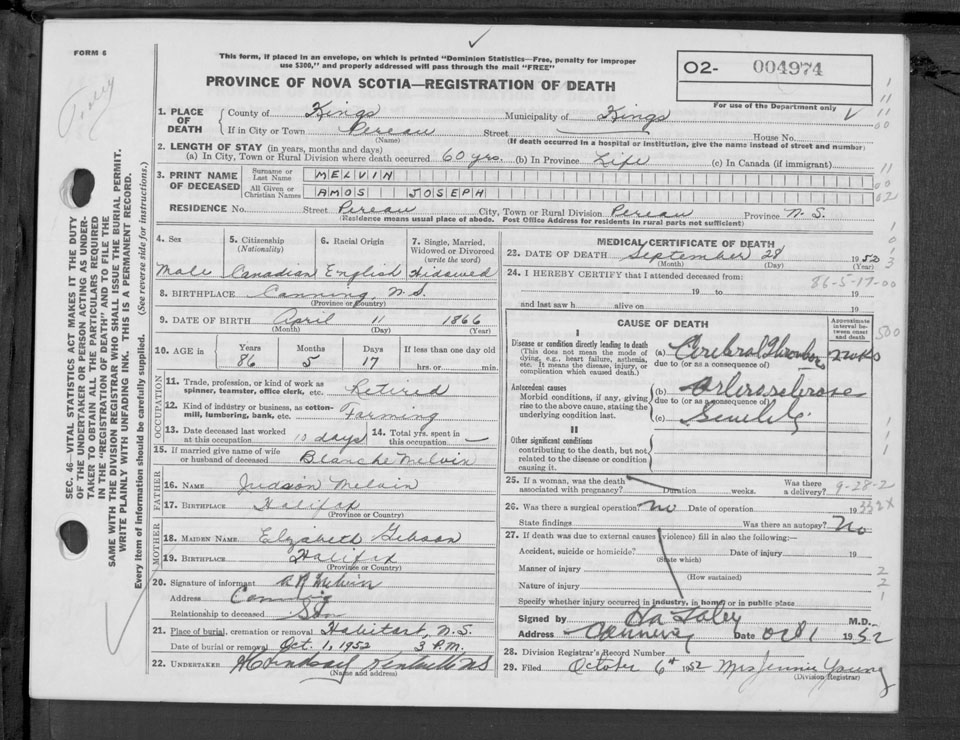 FORM 6
This form, if placed in an envelope, on which is printed "Dominion Statistics—Free, penalty for improper
use $300," and properly addressed will pass through the mail "FREE"
PROVINCE OF NOVA SCOTIA—REGISTRATION OF DEATH
O2- 004974
For use of the Department only
SEC. 46—VITAL STATISTICS ACT MAKES IT THE DUTY
OF THE UNDERTAKER OR PERSON ACTING AS UNDER-
TAKER TO OBTAIN ALL THE PARTICULARS REQUIRED
IN THE "REGISTRATION OF DEATH" AND TO FILE THE
SAME WITH THE DIVISION REGISTRAR WHO SHALL ISSUE THE BURIAL PERMIT.
WRITE PLAINLY WITH UNFADING INK. THIS IS A PERMANENT RECORD.
Every item of information should be carefully supplied. (See reverse side for instructions.)
1. PLACE OF DEATH County of Kings Municipality of Kings
If in City or Town Pereau Street House No.
(Name) (If death occurred in a hospital or institution, give the name instead of street and number)
2. LENGTH OF STAY (in years, months and days)
(a) In City, Town or Rural Division where death occurred 60 yrs. (b) In Province Life (c) In Canada (if immigrant)
3. PRINT NAME OF DECEASED Surname or Last Name MELVIN
All Given or Christian Names AMOS JOSEPH
RESIDENCE No. Street Pereau City, Town or Rural Division Pereau Province N. S.
(Residence means usual place of abode. Post Office Address for residents in rural parts not sufficient)
4. Sex 5. Citizenship (Nationality) 6. Racial Origin 7. Single, Married, Widowed or Divorced (write the word)
Male Canadian English Widowed
8. BIRTHPLACE Canning, N.S.
(Province or Country)
9. DATE OF BIRTH April 11 1866
(Month) (Day) (Year)
10. AGE in Years Months Days If less than one day old
86 5 17 hrs. or min.
OCCUPATION
11. Trade, profession, or kind of work as spinner, teamster, office clerk, etc. Retired
12. Kind of industry or business, as cotton-mill, lumbering, bank, etc. Farming
13. Date deceased last worked at this occupation 10 days 14. Total yrs. spent in this occupation —
15. If married give name of wife or husband of deceased Blanche Melvin
FATHER
16. NAME Judson Melvin
17. BIRTHPLACE Halifax
(Province or Country)
MOTHER
18. MAIDEN NAME Elizabeth Gibson
19. BIRTHPLACE Halifax
(Province or Country)
20. Signature of informant Melvin
Address Canning
Relationship to deceased Son
21. Place of burial, cremation or removal Habitant, N.S.
Date of burial or removal Oct. 1, 1952 3 P.M.
22. UNDERTAKER
(Name and address)
MEDICAL CERTIFICATE OF DEATH
23. DATE OF DEATH September 28 1952
(Month) (Day) (Year)
24. I HEREBY CERTIFY that I attended deceased from:
86-5-17-00
19 to 19
and last saw h alive on 19
CAUSE OF DEATH
Approximate interval between onset and death
I
Disease or condition directly leading to death
(This does not mean the mode of dying, e.g., heart failure, asthenia, etc. It means the disease, injury, or complication which caused death.)
(a) Cerebral
due to (or as a consequence of)
Antecedent causes
Morbid conditions, if any, giving rise to the above cause, stating the underlying condition last.
(b) Arteriosclerosis
due to (or as a consequence of)
(c) Senility
II
Other significant conditions
contributing to the death, but not related to the disease or condition causing it.
25. If a woman, was the death associated with pregnancy? Duration weeks. Was there a delivery? 9-28-2
26. Was there a surgical operation? No Date of operation 19
State findings Was there an autopsy? No
27. If death was due to external causes (violence) fill in also the following:—
Accident, suicide or homicide? Date of injury 19
(State which)
Manner of injury
(How sustained)
Nature of injury
Specify whether injury occurred in industry, in home or in public place
Signed by M.D.
Address Canning Date Oct 1 1952
28. Division Registrar's Record Number
29. Filed October 6th 1952 Mrs Jennie Young
(Division Registrar)